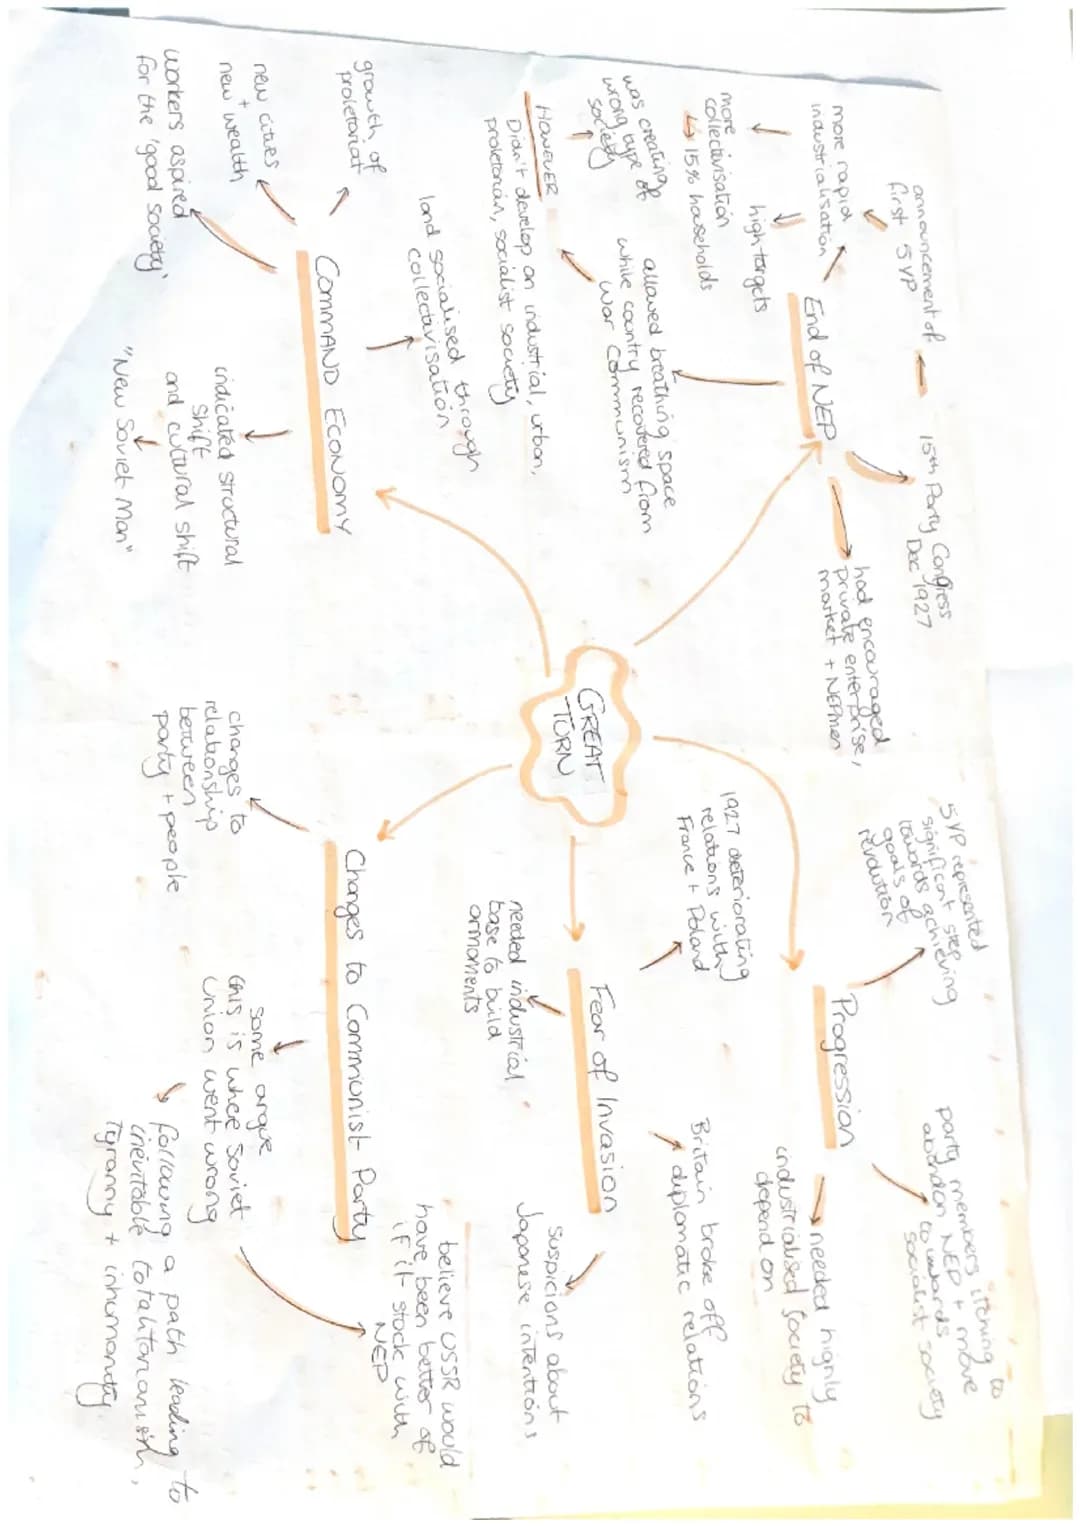 GREAT
TURN
End of NEP
15th Party Congress
Dec 1927
announcement of
first 5 YP
more rapid
industrialisation
high targets
more
collectivisation
↳ 15% households
had encouraged
private enterprise,
market + NEPmen
allowed breathing space
while country recovered from
war communism
was creating
wrong type of
society
HOWEVER
Didn't develop an industrial, urban,
proletarian, socialist society
COMMAND ECONOMY
land socialised through
collectivisation
growth of
proletariat
new cities
+
new wealth
workers aspired
for the 'good society'
indicated structural
shift
and cultural shift
"New Soviet Man"
Progression
5 YP represented
significant step
towards achieving
goals of
revolution
party members itching to
abandon NEP + move
towards
socialist society
needed highly
industrialised society to
depend on
Fear of Invasion
1927 deteriorating
relations with
France + Poland
Britain broke off
diplomatic relations
needed industrial
base to build
armaments
Suspicions about
Japanese intentions
Changes to Communist Party
changes to
relationship
between
party + people
some argue
this is where Soviet
Union went wrong
↳ following a path leading to
inevitable totalitarianism,
tyranny + inhumanity.
believe USSR would
have been better of
if it stock with
NEP